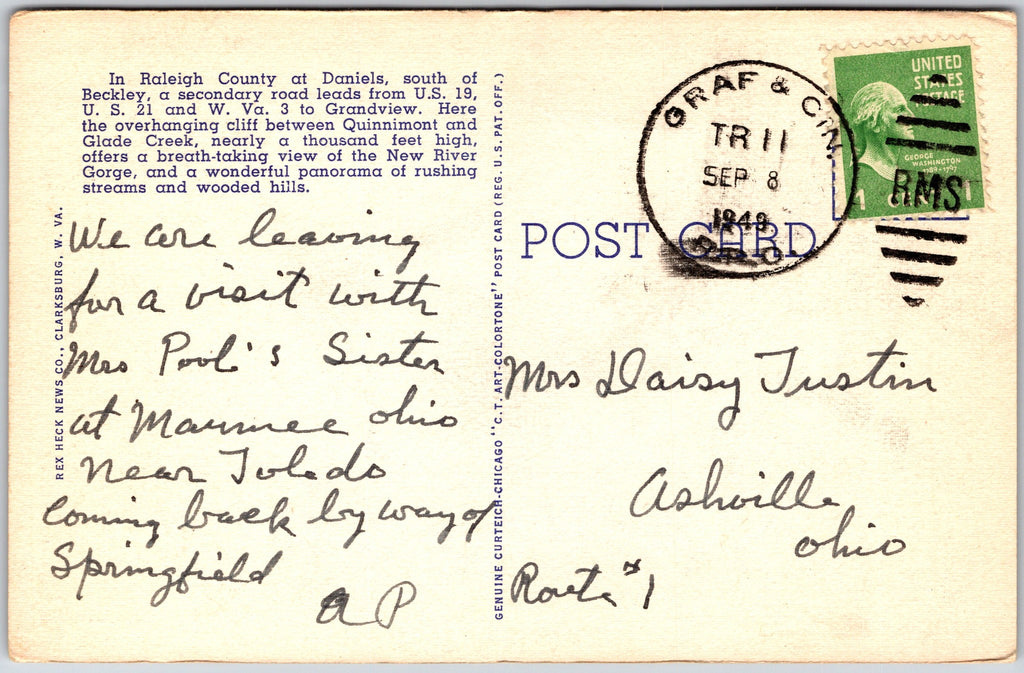 In Raleigh County at Daniels, south of
Beckley, a secondary road leads from U.S. 19,
U. S. 21 and W. Va. 3 to Grandview. Here
the overhanging cliff between Quinnimont and
Glade Creek, nearly a thousand feet high,
offers a breath-taking view of the New River
Gorge, and a wonderful panorama of rushing
streams and wooded hills.
We are leaving
for a visit with
Mrs Pool's Sister
at Maumee ohio
Near Toledo
Coming back by way of
Springfield
A P
REX HECK NEWS CO., CLARKSBURG, W. VA.
GENUINE CURTEICH-CHICAGO "C.T. ART-COLORTONE" POST CARD (REG. U.S. PAT. OFF.)
POST CARD
GRAF & CIN.
TR 11
SEP 8
1949
R.P.O
RMS
UNITED
STATES
POSTAGE
GEORGE
WASHINGTON
1789-1797
1 1
Mrs Daisy Justin
Ashville
ohio
Route #1